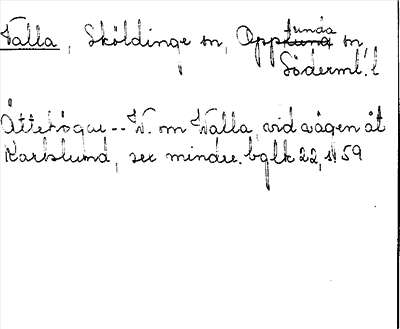 Valla, Sköldinge sn, Oppunda sn
Söderml. l
Ättehögar -- W. om Walla, vid vägen åt
Karlslund, ser mindre. bglk 22, 1959